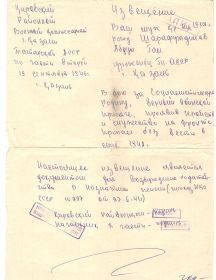 Кировский
Районный
Военный Комиссариат
г. Казани
Татарской АССР
по части второй
18 сентября 1946 г.
г. Казань
Извещение
Ваш муж
Шарафутдинов
уроженец Тат АССР
г. Казани
В бою за Социалистическую
Родину, верный воинской
присяге, проявив геройство
и мужество на фронте
пропал без вести в
Настоящее извещение является
документом для возбуждения ходатай-
ства о назначении пенсии (приказ НКО
СССР №
Кировский Райвоенком
начальник 2 части